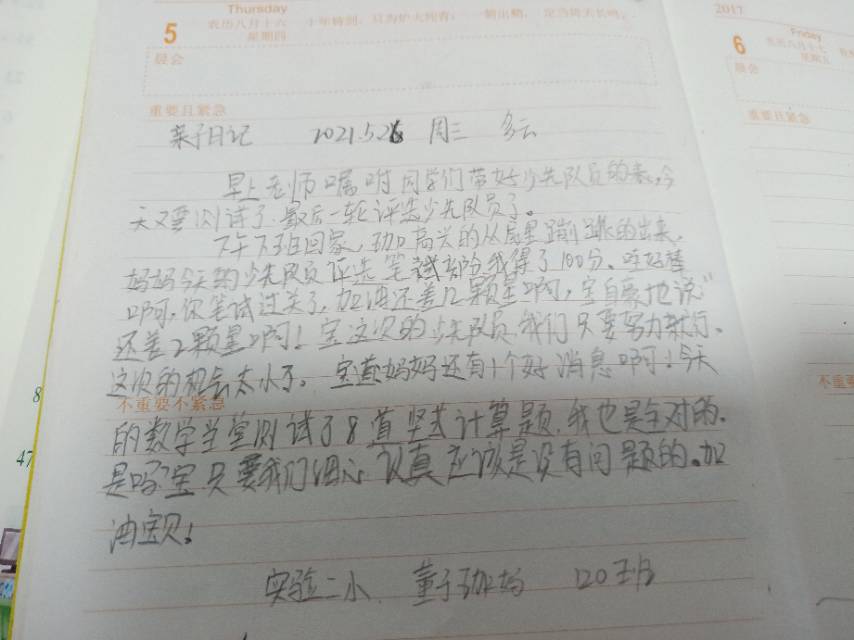 Thursday
5
农历八月十六
星期四
十年铸剑,只为炉火纯青;一朝出鞘,定当倚天长鸣。
晨会
重要且紧急
亲子日记 2021.5.26 周三 多云
早上老师嘱咐同学们带好少先队员的表,今
天又要测试了.最后一轮评选少先队员了。
下午下班回家,珈高兴的从屋里蹦跳的出来,
妈妈今天的少先队员评选笔试部份我得了100分。哇好棒
啊,你笔试过关了,加油还差几颗星啊,宝自豪地说"
还差2颗星啊!宝这次的少先队员我们只要努力就行。
这次的机会太小了。宝黄妈妈还有1个好消息啊!今天
不重要不紧急
的数学当堂测试了8道坚式计算题,我也是全对的.
是吗"宝只要我们细心认真应该是没有问题的。加
油宝贝!
实验二小 董子珈妈 120班
2017
Friday
6
农历八月十七
星期五
晨会
重要且紧急
不重
8
47